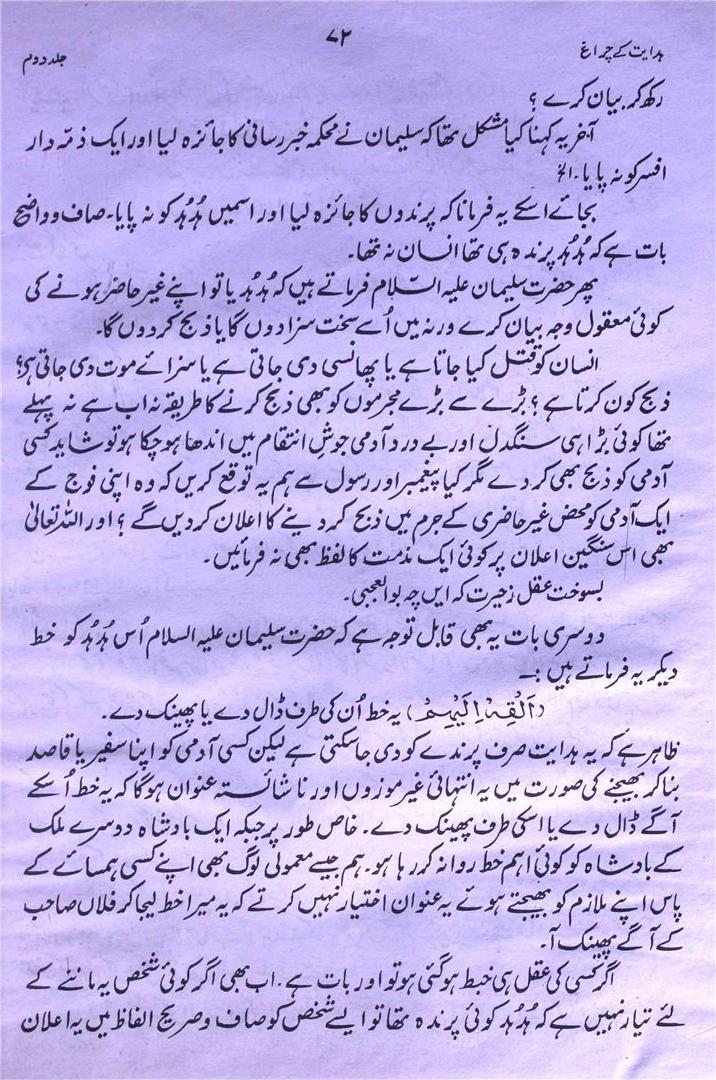 ہدایت کے چراغ
۷۲
جلد دوم
رکھ کر بیان کرے ؟
آخر یہ کہنا کیا مشکل تھا کہ سلیمان نے محکمہ خبر رسانی کا جائزہ لیا اور ایک ذمّہ دار
افسر کو نہ پایا۔ الخ
بجائے اسکے یہ فرمانا کہ پرندوں کا جائزہ لیا اور اسمیں ہُدہُد کو نہ پایا۔ صاف و واضح
بات ہے کہ ہُدہُد پرندہ ہی تھا انسان نہ تھا۔
پھر حضرت سلیمان علیہ السّلام فرماتے ہیں کہ ہُدہُد یا تو اپنے غیر حاضر ہونے کی
کوئی معقول وجہ بیان کرے ورنہ میں اُسے سخت سزا دوں گا یا ذبح کر دوں گا۔
انسان کو قتل کیا جاتا ہے یا پھانسی دی جاتی ہے یا سزائے موت دی جاتی ہی؟
ذبح کون کرتا ہے ؟ بڑے سے بڑے مجرموں کو بھی ذبح کرنے کا طریقہ نہ اب ہے نہ پہلے
تھا کوئی بڑا ہی سنگدل اور بے درد آدمی جوشِ انتقام میں اندھا ہو چکا ہو تو شاید کسی
آدمی کو ذبح بھی کر دے مگر کیا پیغمبر اور رسول سے ہم یہ توقع کریں کہ وہ اپنی فوج کے
ایک آدمی کو محض غیر حاضری کے جرم میں ذبح کر دینے کا اعلان کر دیں گے ؟ اور اللہ تعالیٰ
بھی اس سنگین اعلان پر کوئی ایک مذمت کا لفظ بھی نہ فرمائیں۔
بسوخت عقل زحیرت کہ ایں چہ بوالعجبی۔
دوسری بات یہ بھی قابل توجہ ہے کہ حضرت سلیمان علیہ السلام اُس ہُدہُد کو خط
دیکر یہ فرماتے ہیں :۔
(اَلْقِهْ اِلَیْهِمْ) یہ خط اُن کی طرف ڈال دے یا پھینک دے۔
ظاہر ہے کہ یہ ہدایت صرف پرندے کو دی جا سکتی ہے لیکن کسی آدمی کو اپنا سفیر یا قاصد
بنا کر بھیجنے کی صورت میں یہ انتہائی غیر موزوں اور ناشائستہ عنوان ہوگا کہ یہ خط اُسکے
آگے ڈال دے یا اسکی طرف پھینک دے۔ خاص طور پر جبکہ ایک بادشاہ دوسرے ملک
کے بادشاہ کو کوئی اہم خط روانہ کر رہا ہو۔ ہم جیسے معمولی لوگ بھی اپنے کسی ہمسائے کے
پاس اپنے ملازم کو بھیجتے ہوئے یہ عنوان اختیار نہیں کرتے کہ یہ میرا خط لیجا کر فلاں صاحب
کے آگے پھینک آ۔
اگر کسی کی عقل ہی خبط ہو گئی ہو تو اور بات ہے۔ اب بھی اگر کوئی شخص یہ ماننے کے
لئے تیار نہیں ہے کہ ہُدہُد کوئی پرندہ تھا تو ایسے شخص کو صاف و صریح الفاظ میں یہ اعلان